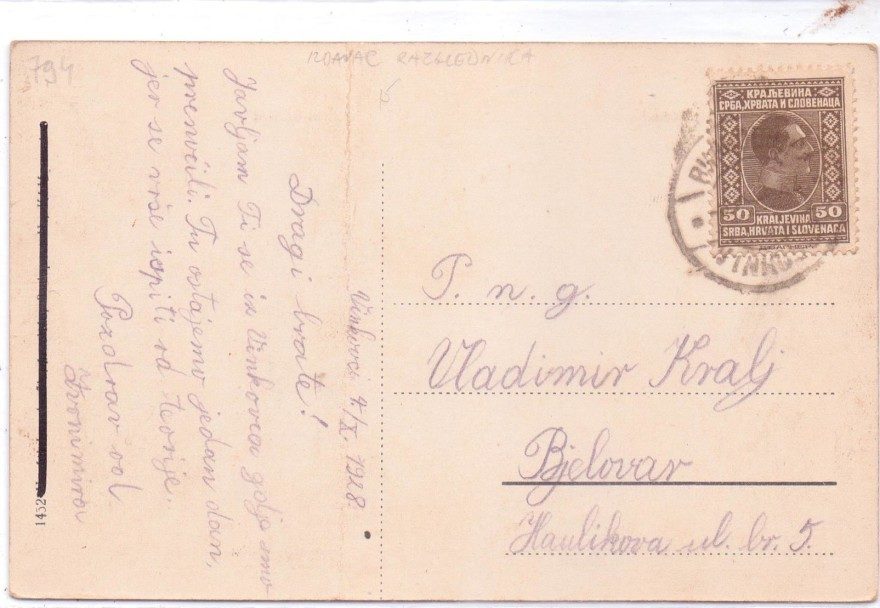 794
IZDAVAČ RAZGLEDNICA
Vinkovci 4/X. 1928.
Dragi brate!
Javljam Ti se iz Vinkovca gdje smo
prenoćili. Tu ostajemo jedan dan,
jer se vrše ispiti od
Pozdrav od
Zvonimira
1452
КРАЉЕВИНА
СРБА, ХРВАТА И СЛОВЕНАЦА
50 50
KRALJEVINA
SRBA, HRVATA I SLOVENACA
P. n. g.
Vladimir Kralj
Bjelovar
Haulikova ul. br. 5.